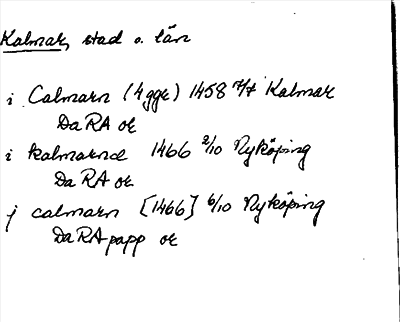 Kalmar, stad o. län
i Calmarn (4 ggr) 1458 7/7 Kalmar
DaRA or
i kalmarnæ 1466 2/10 Nyköping
DaRA or
j calmarn [1466] 6/10 Nyköping
DaRA papp or